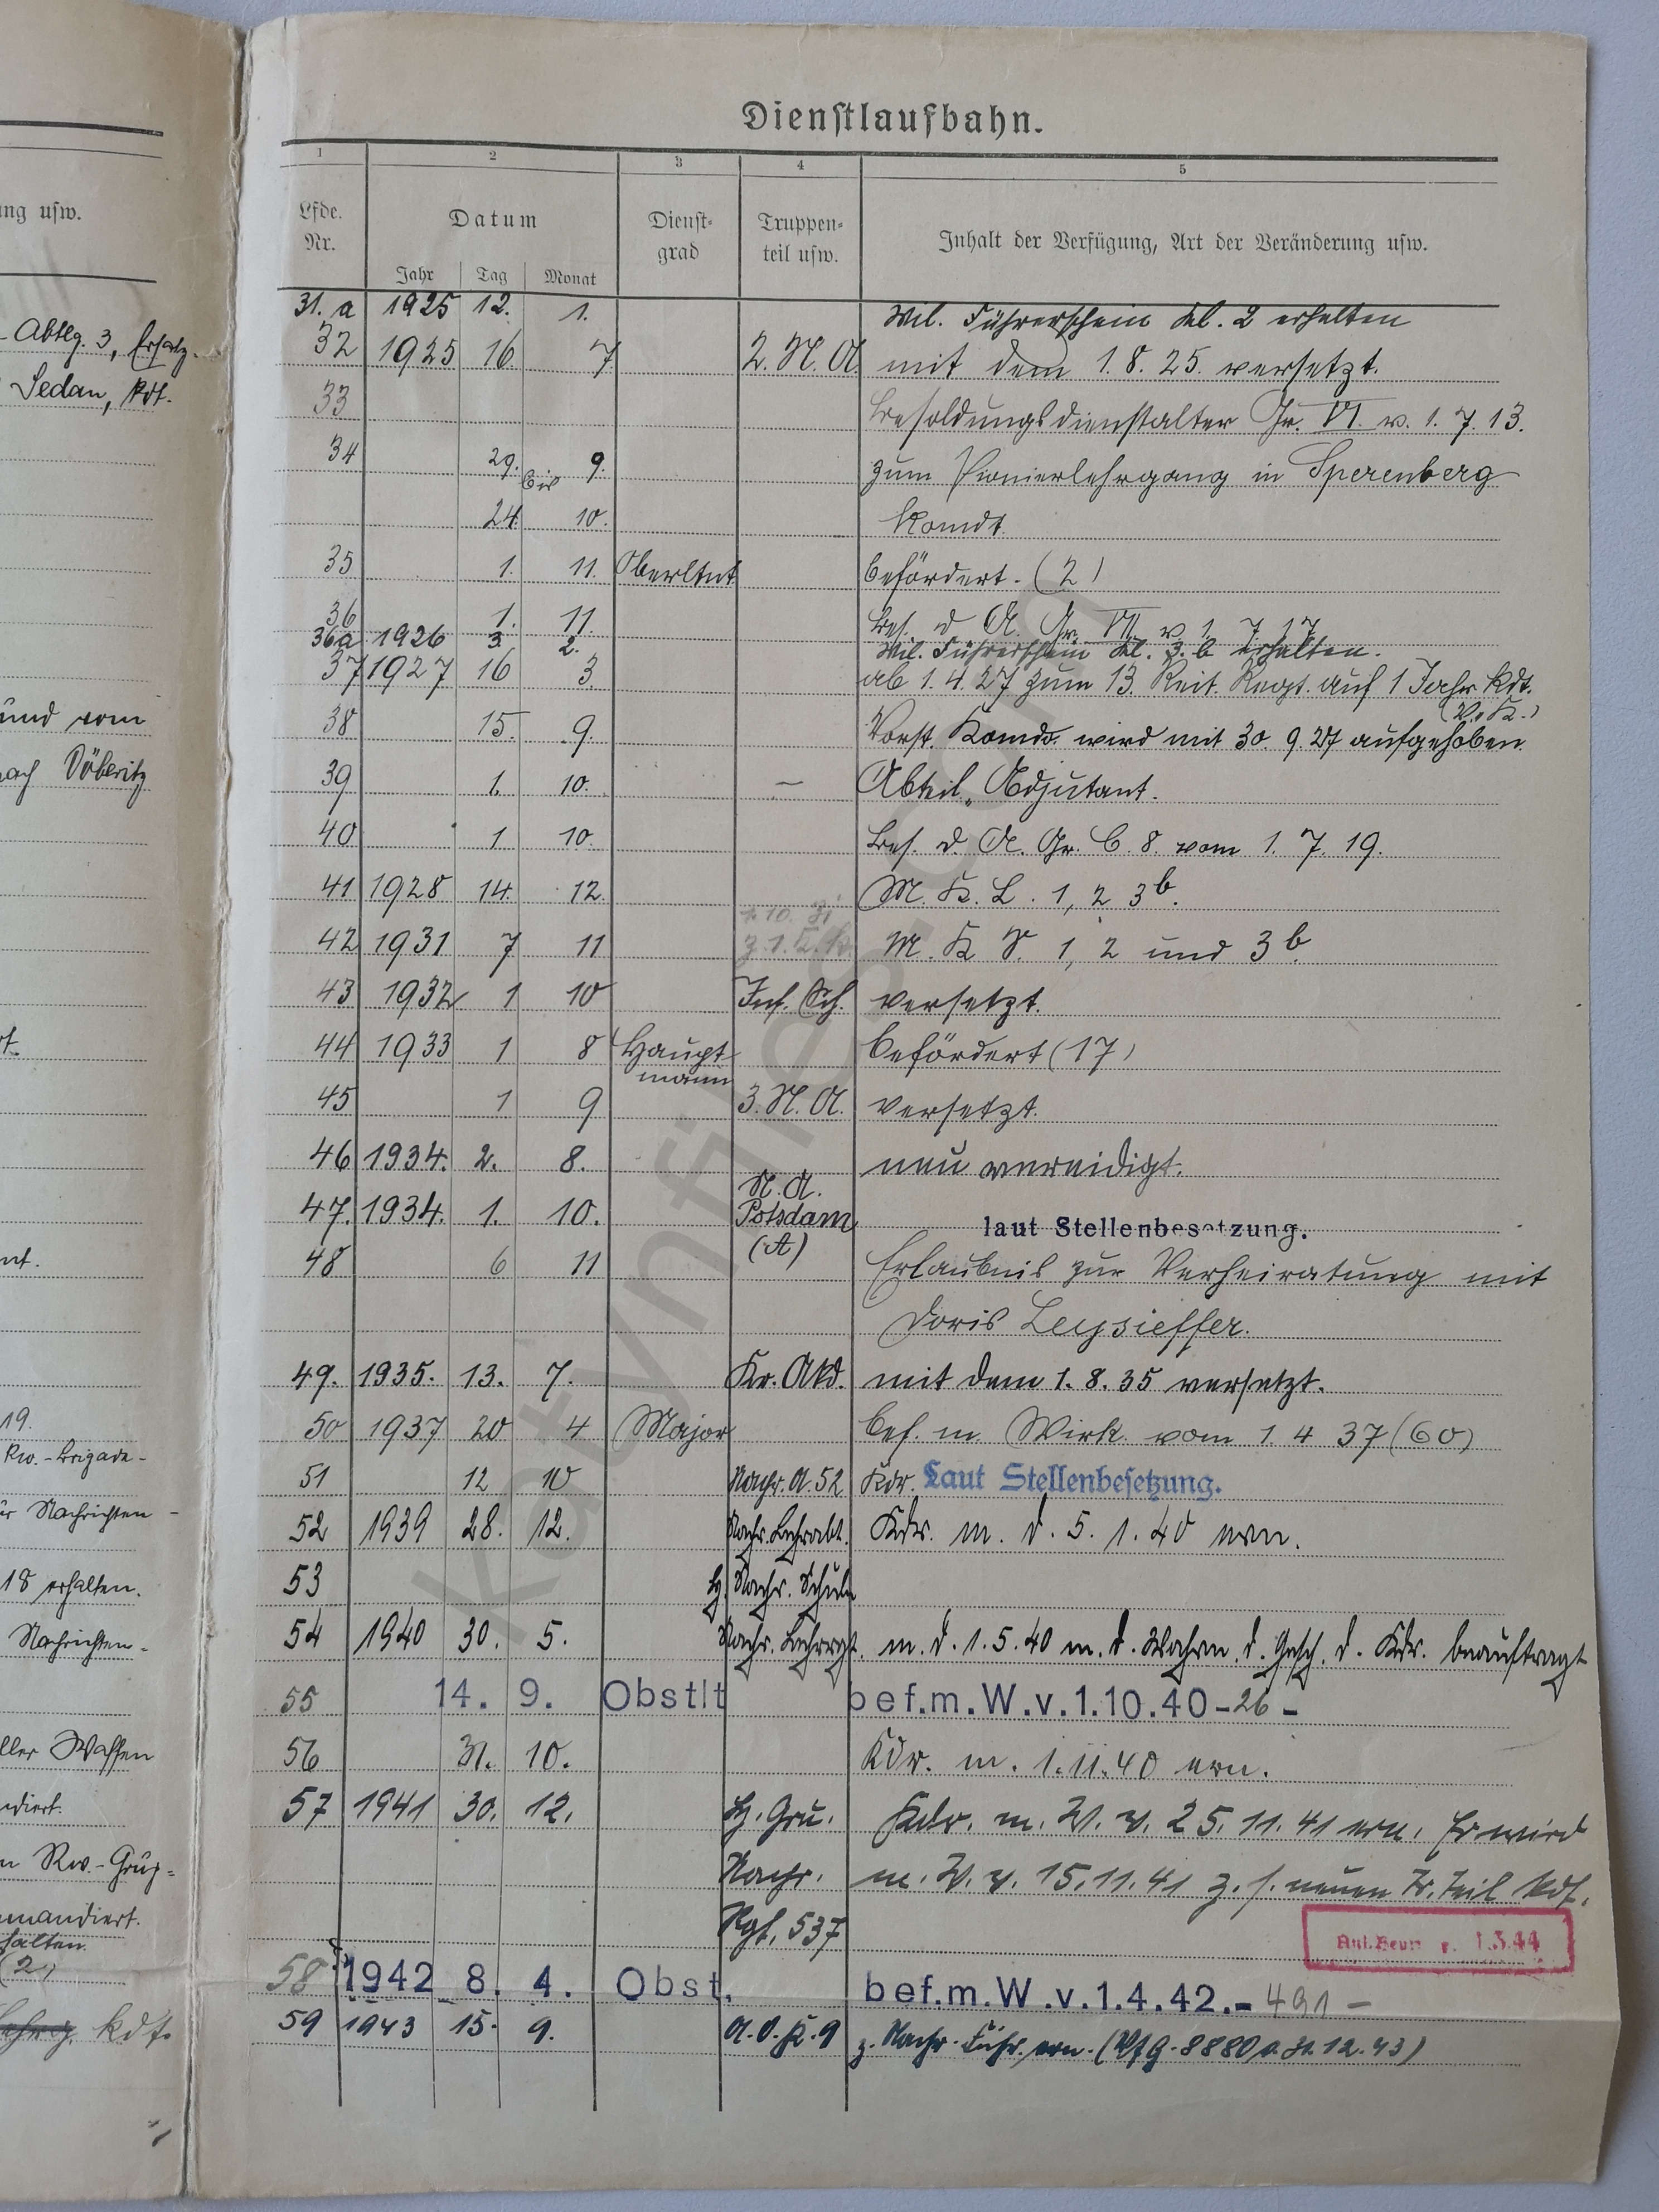 ung usw.
- Abtlg. 3, Ersatz-
Sedan, kdt.
und vom
nach Döberitz
rt.
nt.
19.
Rw.-Brigade-
Nachrichten-
18 erhalten.
Nachrichten-
ller Waffen
ndiert.
n Rw.-Grup-
mmandiert.
halten.
(2)
kdt.
Dienstlaufbahn.
1 2 3 4 5
Lfde. Nr. Datum Dienst- grad Truppen- teil usw. Inhalt der Verfügung, Art der Veränderung usw.
Jahr Tag Monat
31.a 1925 12. 1. Mil. Führerschein Kl. 2 erhalten
32 1925 16. 7 2. N. A. mit dem 1. 8. 25. versetzt.
33 Besoldungsdienstalter Gr. VI. v. 1. 7. 13.
34 29. 9. zum Pionierlehrgang in Sperenberg
bis
24. 10. Komdt.
35 1. 11. Oberltnt befördert. (2)
36 1. 11. Bes. d. A. Gr. VII v. 1. 7. 17
36a 1926 3. 2. Mil. Führerschein Kl. 3. b erhalten.
37 1927 16 3. ab 1. 4. 27 zum 13. Reit. Regt. auf 1 Jahr kdt.
(V. K.)
38 15. 9. Vorst. Komdo. wird mit 30. 9. 27 aufgehoben.
39 1. 10. — Abteil. Adjutant.
40 1 10. Bes. d. A. Gr. C. 8. vom 1. 7. 19.
41 1928 14. 12. M. K. L. 1, 2 3b.
1. 10. 31
42 1931 7 11 M. K. 1, 2 und 3b.
43 1932 1 10 Inf. Sch. versetzt.
44 1933 1 8 Haupt- befördert (17)
mann
45 1 9 3. N. A. versetzt.
46 1934. 2. 8. neu vereidigt.
N. A.
47. 1934. 1. 10. Potsdam laut Stellenbesetzung.
(A)
48 6 11 Erlaubnis zur Verheiratung mit
Doris Leysieffer.
49. 1935. 13. 7. Kr. Akd. mit dem 1. 8. 35 versetzt.
50 1937 20 4 Major bef. m. Wirk. vom 1 4 37 (60)
51 12 10 Nachr. A. 52 Kdr. Laut Stellenbesetzung.
52 1939 28. 12. Nachr. Lehrabt. Kdr. m. d. 5. 1. 40 ern.
53 H. Nachr. Schule
54 1940 30. 5. Nachr. Lehrrgt. m. d. 1. 5. 40 m. d. Wahrn. d. Gesch. d. Kdr. beauftragt
55 14. 9. Obstlt bef.m.W.v.1.10.40-26-
56 31. 10. Kdr. m. 1. 11. 40 ern.
57 1941 30. 12. H. Gru. Kdr. m. W. v. 25. 11. 41 ern. Er wird
Nachr. m. W. v. 15. 11. 41 z. s. neuen Tr. Teil kdt.
Rgt. 537
1.3.44
58 1942 8. 4. Obst. bef.m.W.v.1.4.42.-491-
59 1943 15. 9. A.O.K. 9 z. Nachr. Führ. ern. (Vfg. 8880 v. 31. 12. 43)
katynfiles.com